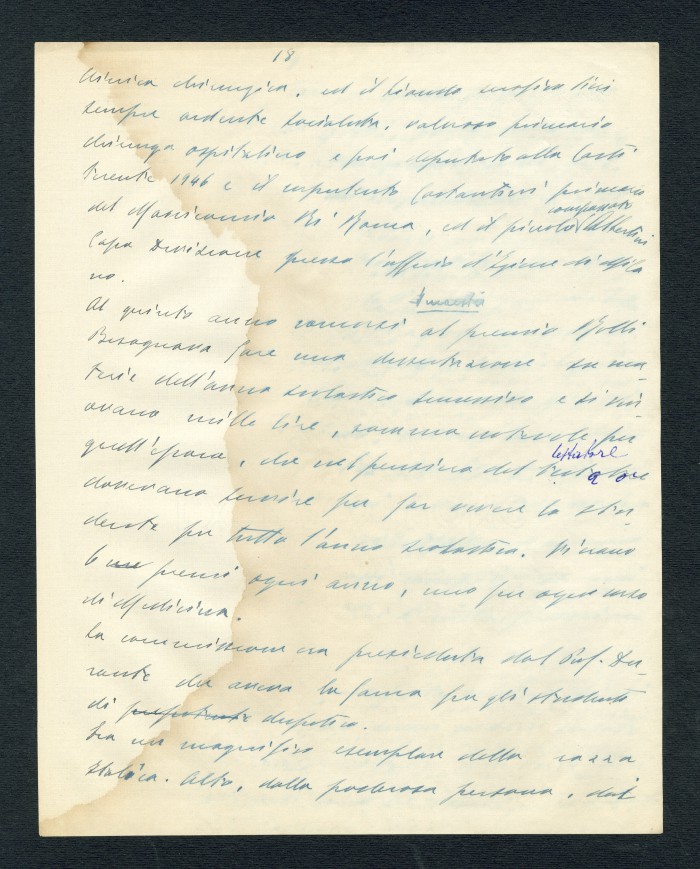 18
clinica chirurgica, ed il biondo
sempre ardente socialista, valoroso primario
chirurgo ospitaliero e poi deputato alla Costi
tuente 1946 e il Costantini primario
compassato
del Manicomio di Roma, ed il piccolo Albertini
Capo Divisione presso l'ufficio d'Igiene di Mila
no.
Al quinto anno concorsi al premio Rolli
Bisognava fare una dissertazione su ma-
terie dell'anno scolastico successivo e si vin-
cevano mille lire, somma notevole per
testatore
quell'epoca, che nel pensiero del
dovevano servire per far vivere lo stu-
dente per tutto l'anno scolastico. Vi erano
6 premi ogni anno, uno per ogni corso
di Medicina.
La commissione era presieduta dal Prof. Du-
rante che aveva la fama fra gli studenti
di prepotente despotico.
Era un magnifico esemplare della razza
italica. Alto, dalla poderosa persona, dal